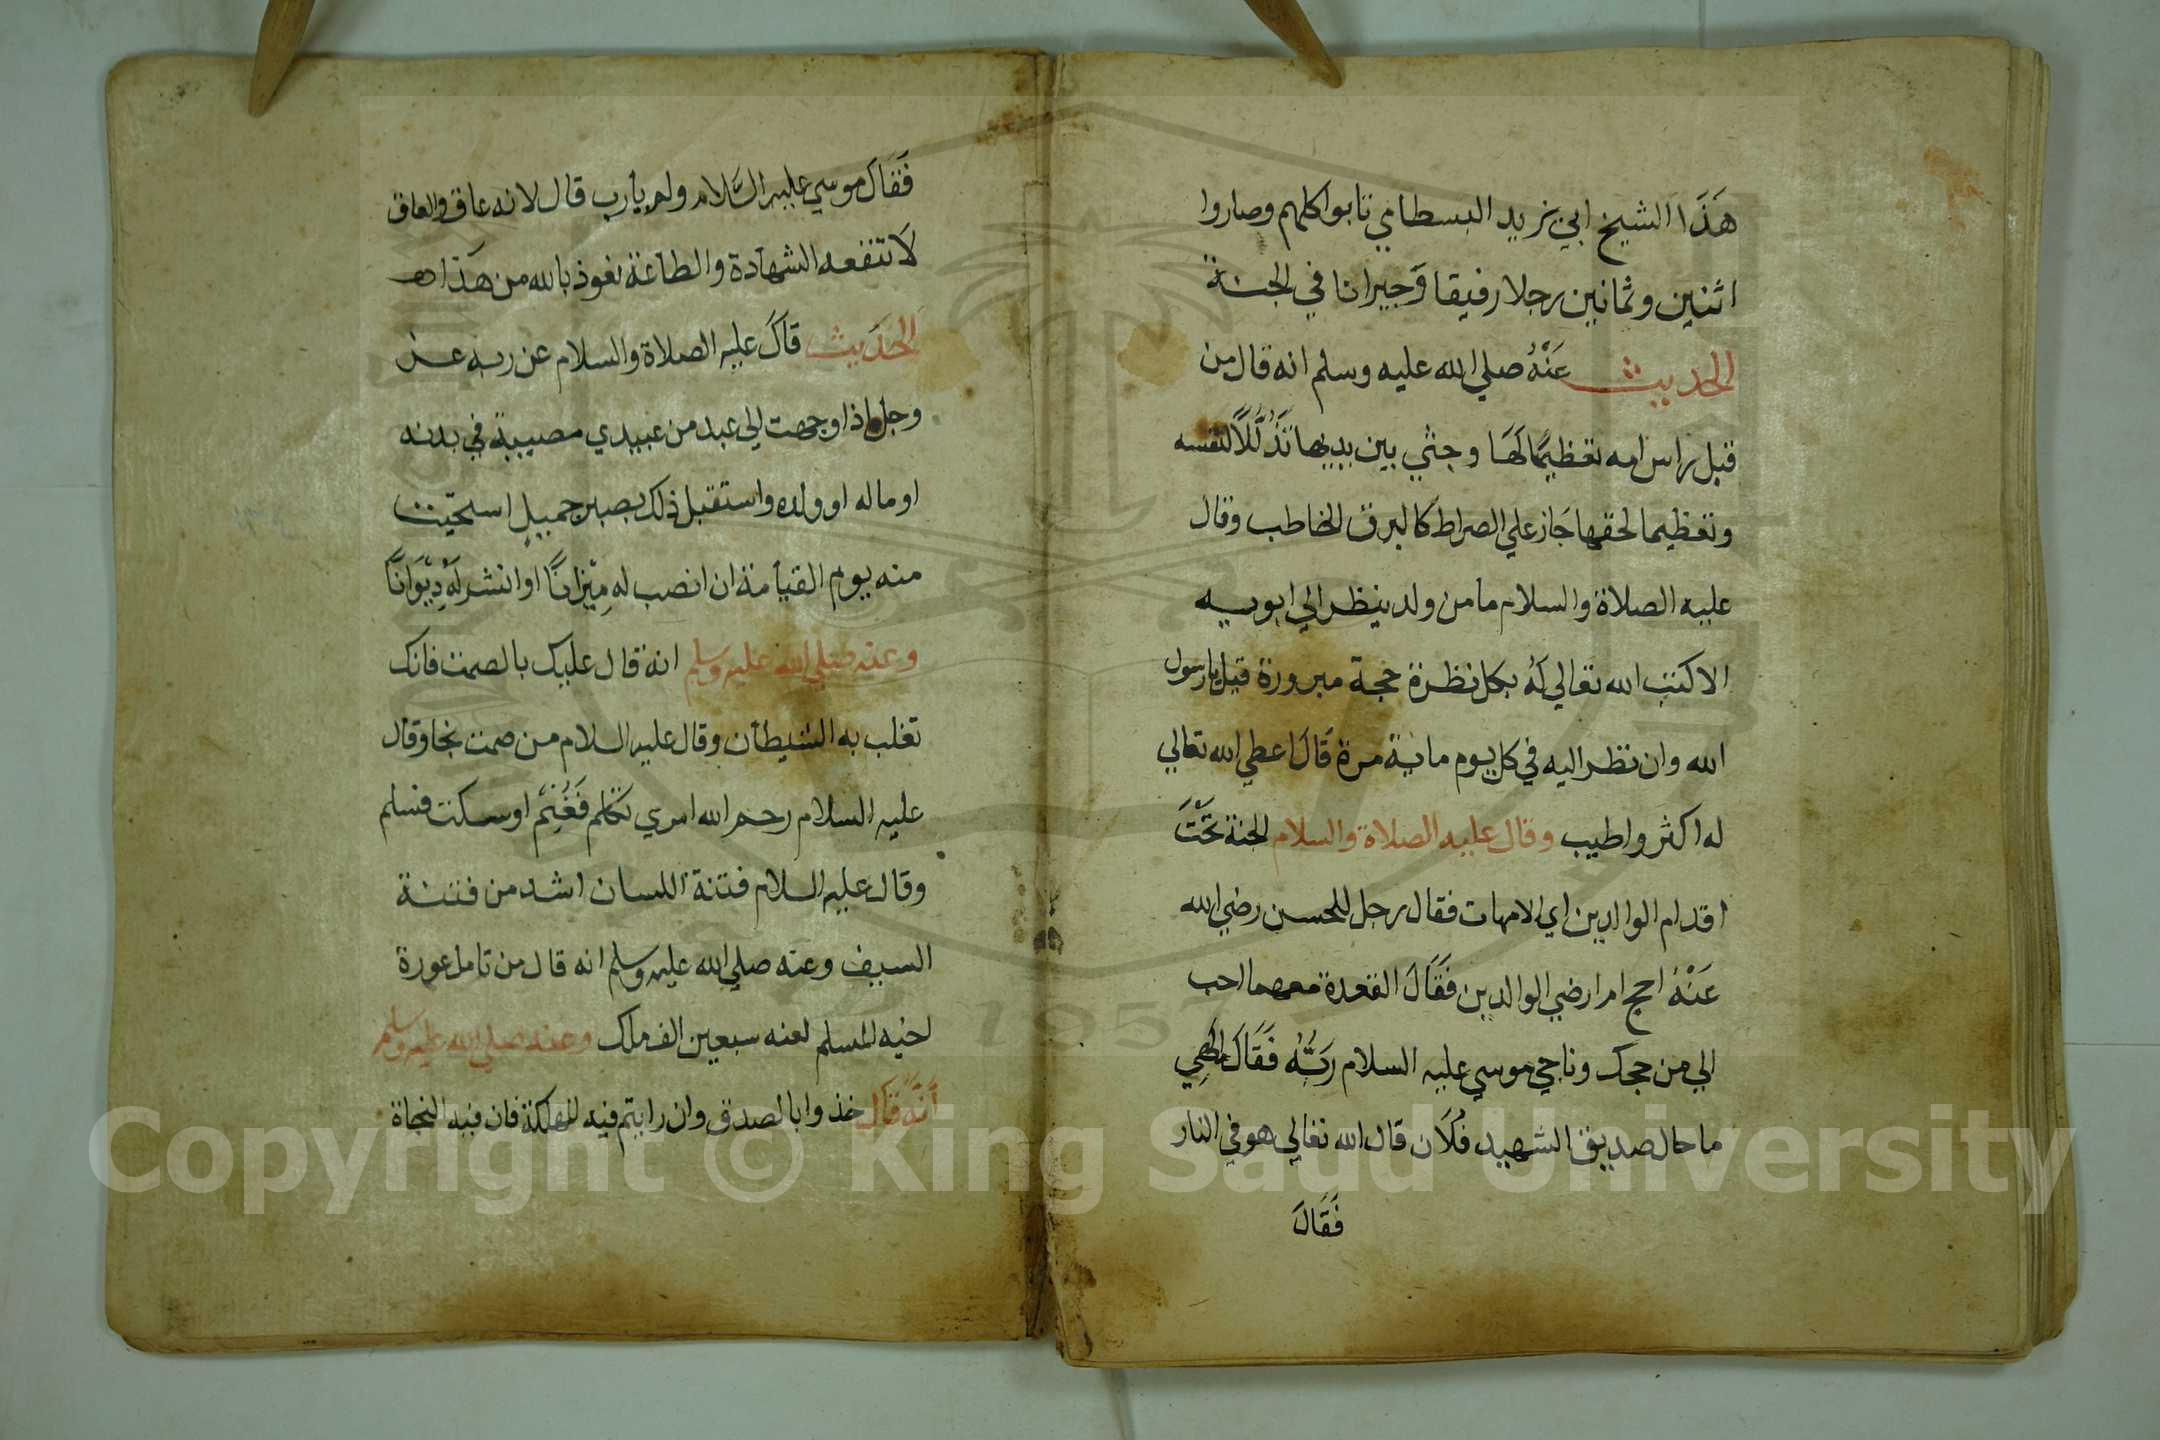 هَذَا الشيخ ابي يزيد البسطامي تابوا كلهم وصاروا
اثنين وثمانين رجلا رفيقا وَجيرانا في الجنة
الحديث عَنْهُ صلي الله عليه وسلم انه قال من
قبل راس امه تعظيمًا لَهَا وجثي بين يديها تَذَلُّلاً لنفسه
وتعظيما لحقها جَاز علي الصراط كالبرق الخاطب وقال
عليه الصلاة والسلام ما من ولد ينظر الي ابويه
الا كتب الله تعالي لَهُ بكل نظرة حجة مبرورة قيل يارسول
الله وان نظر اليه في كل يوم ماية مرة قَالَ اعطي الله تعالي
له اكثر واطيب وقال عليه الصلاة والسلام الجنة تَحْتَ
اقدام الوالدين اي الامهات فقال رجل للحسن رضي الله
عَنْهُ احج ام ارضي الوالدين فَقَالَ القعدة معهما احب
الي من حجك وناجي موسي عليه السلام رَبَّهُ فَقَالَ الَهِي
ما حال صديق الشهيد فُلَان قال الله تعالي هو في النار
فَقَالَ
فَقَالَ موسي عليه السَّلام ولم يارب قال لانه عاق والعاق
لَا تنفعه الشهادة والطاعة نعوذ بالله من هَذَا هـ
الحَديث قَالَ عليه الصلاة والسلام عن ربه عز
وجل اذا وجهت الي عبد من عبيدي مصيبة في بدنه
او ماله او ولده واستقبل ذلك بصبر جميلٍ استحيت
منه يوم القيامة ان انصب له مِيْزانًا او انشر لَهُ دِيْوَانًا
وعنه صلي الله عليه وسلم انه قال عليك بالصمت فانك
تغلب به الشيطان وقال عليه السلام من صمت نجا وقال
عليه السلام رحم الله امري تكلم فَغُنِمْ او سكت فسلم
وقال عليه السلام فتنة اللسان اشد من فتنة
السيف وعنه صلي الله عليه وسلم انه قال من تامل عورة
اخيه المسلم لعنه سبعين الف ملك وعنه صلي الله عليه وسلم
أَنَّهُ قَالَ خذوا بالصدق وان رايتم فيه الهلكة فان فيه النجاة
Copyright © King Saud University
1957